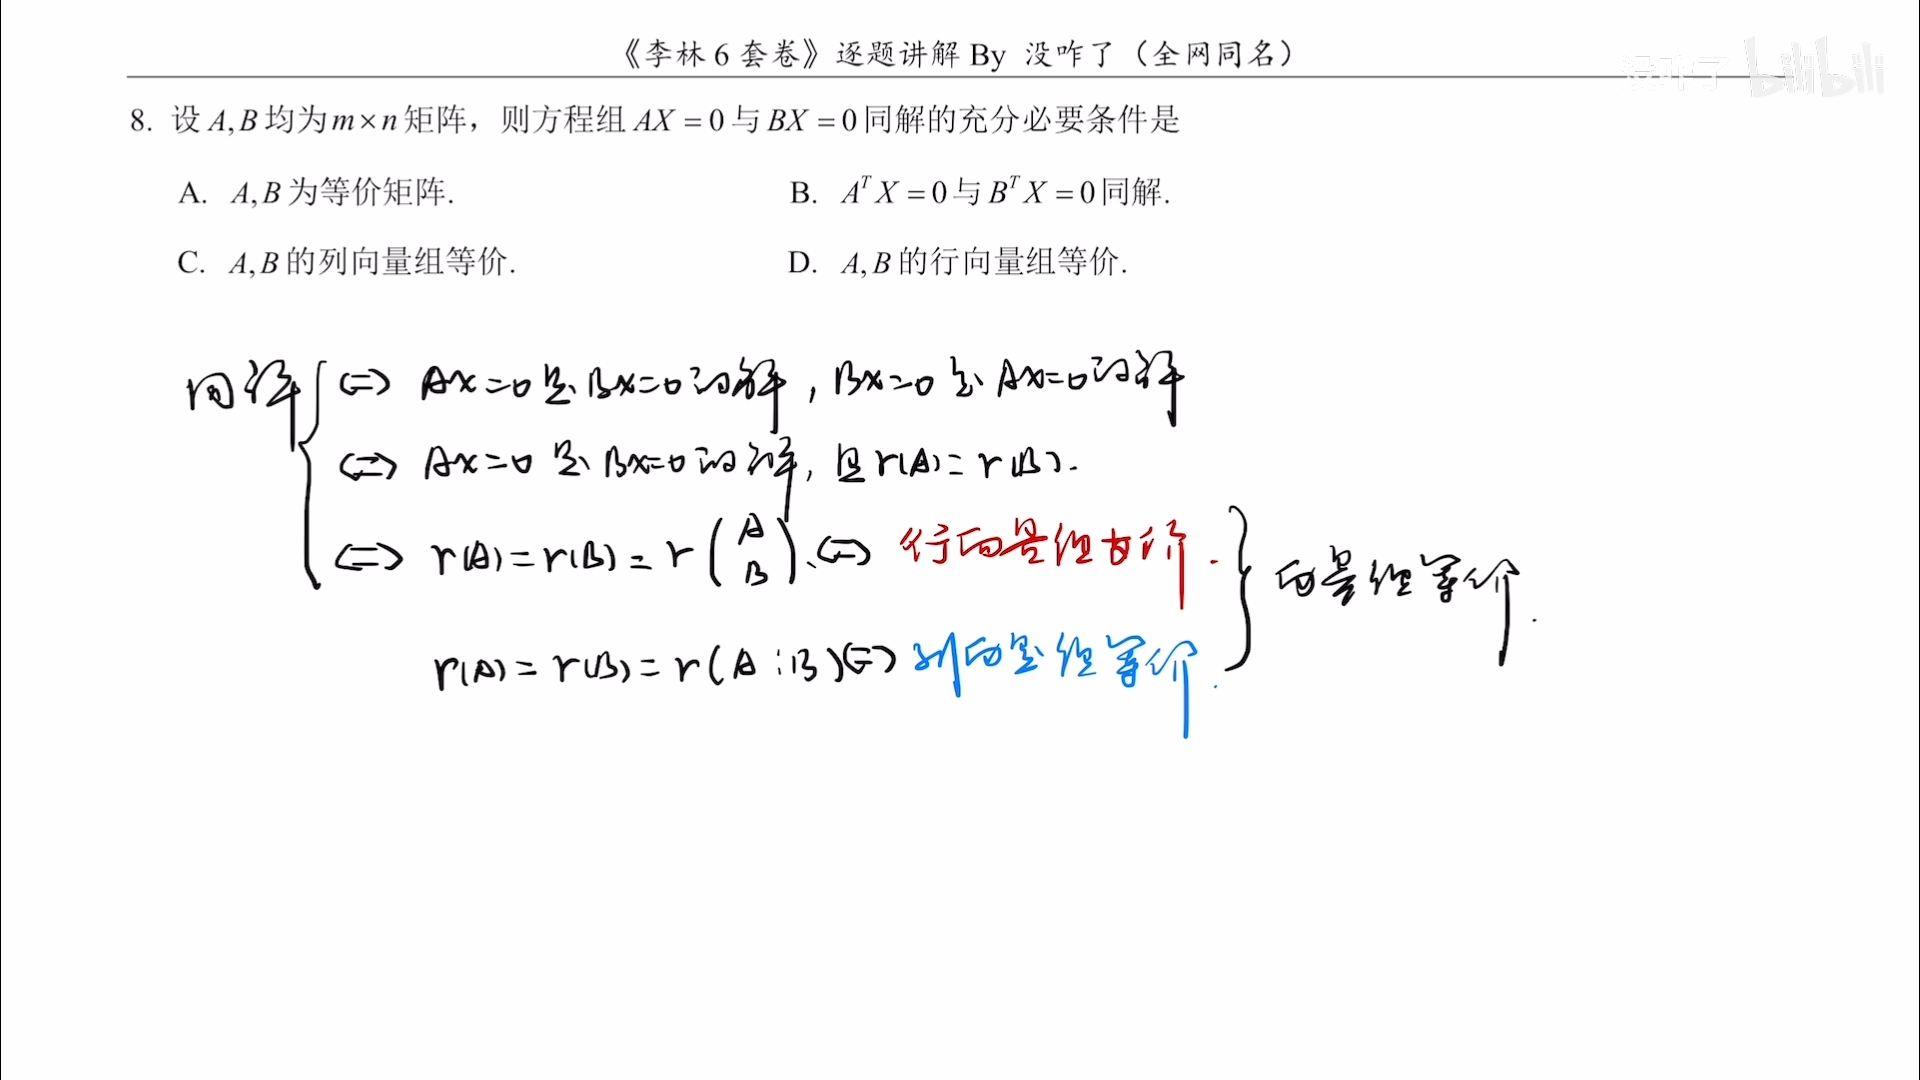 《李林 6 套卷》逐题讲解 By 没咋了（全网同名）
没咋了 bilibili
8. 设 A,B 均为 m×n 矩阵，则方程组 AX = 0 与 BX = 0 同解的充分必要条件是
A. A,B 为等价矩阵.
B. AᵀX = 0 与 BᵀX = 0 同解.
C. A,B 的列向量组等价.
D. A,B 的行向量组等价.
同解 ⇔ Ax=0 是 Bx=0 的解，Bx=0 是 Ax=0 的解
⇔ Ax=0 是 Bx=0 的解，且 r(A)=r(B).
⇔ r(A)=r(B)=r(A B). ⇔ 行向量组等价.
向量组等价.
r(A)=r(B)=r(A⋮B) ⇔ 列向量组等价.